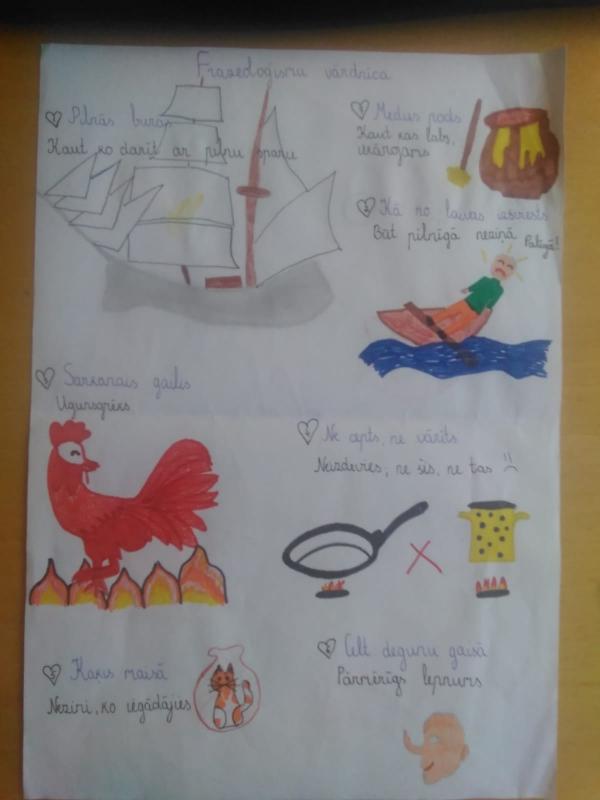 Frazeoloģismu vārdnīca
Pilnās burās
Kaut ko darīt ar pilnu sparu
Medus pods
Kaut kas labs,
iekārojams
Kā no laivas izsviests
Būt pilnīgā neziņā
Palīgā!
Sarkanais gailis
Ugunsgrēks
Ne cepts, ne vārīts
Neizdevies, ne šis, ne tas
5 Kaķis maisā
Nezini, ko iegādājies
Celt degunu gaisā
Pārmērīgs lepnums